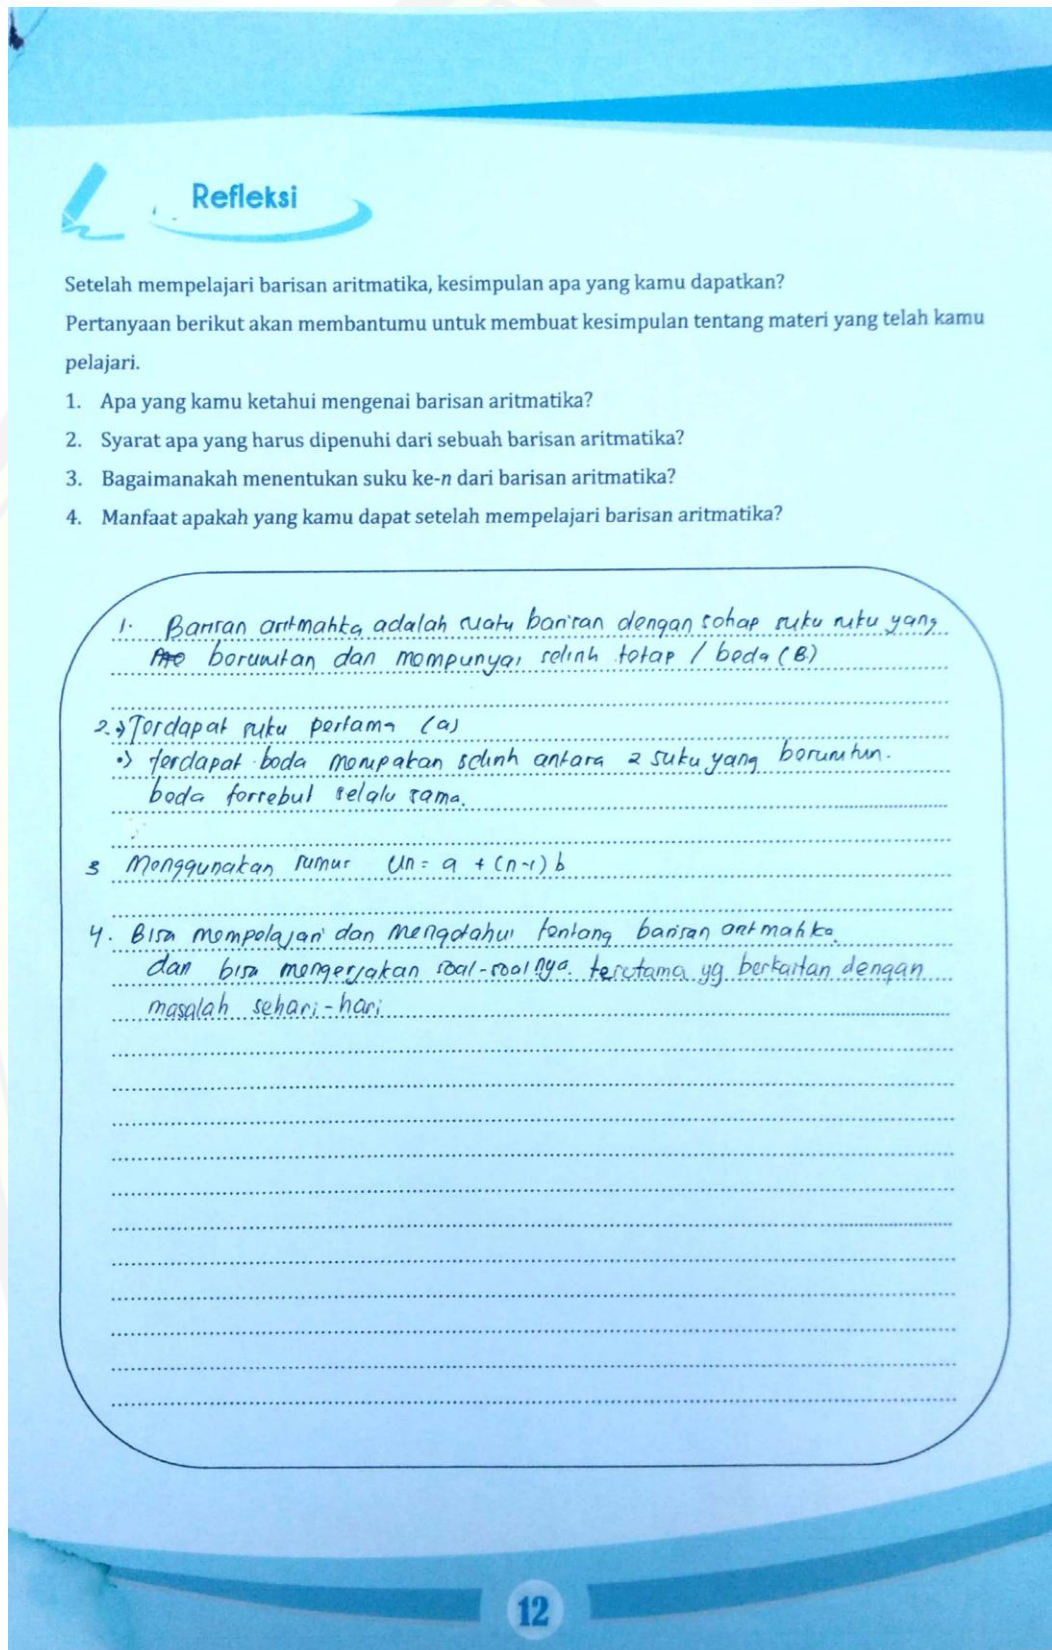 Refleksi
Setelah mempelajari barisan aritmatika, kesimpulan apa yang kamu dapatkan?
Pertanyaan berikut akan membantumu untuk membuat kesimpulan tentang materi yang telah kamu
pelajari.
1. Apa yang kamu ketahui mengenai barisan aritmatika?
2. Syarat apa yang harus dipenuhi dari sebuah barisan aritmatika?
3. Bagaimanakah menentukan suku ke-n dari barisan aritmatika?
4. Manfaat apakah yang kamu dapat setelah mempelajari barisan aritmatika?
1. Barisan aritmatika adalah suatu barisan dengan setiap suku suku yang
berurutan dan mempunyai selisih tetap / beda (B)
2. •) Terdapat suku pertama (a)
•) terdapat beda merupakan selisih antara 2 suku yang beruntun.
beda tersebut selalu sama.
3 Menggunakan rumus Un = a + (n-1) b
4. Bisa mempelajari dan mengetahui tentang barisan aritmatika.
dan bisa mengerjakan soal-soalnya. terutama yg berkaitan dengan
masalah sehari-hari
12